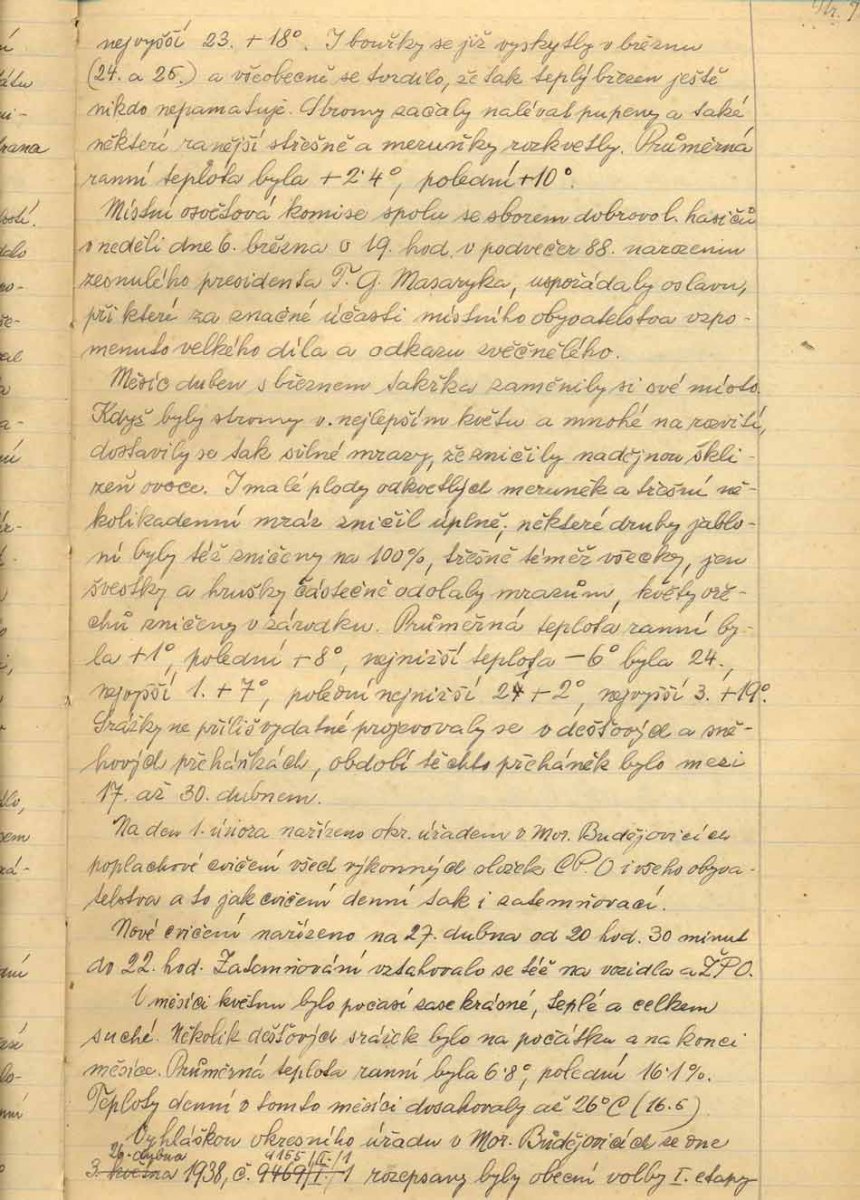 Str. 9
nejvyšší 23. + 18°. I bouřky se již vyskytly v březnu
(24. a 25.) a všeobecně se tvrdilo, že tak teplý březen ještě
nikdo nepamatuje. Stromy začaly nalévat pupeny a také
některé ranější třešně a meruňky rozkvetly. Průměrná
ranní teplota byla + 2·4°, polední +10°.
Místní osvětová komise spolu se sborem dobrovol. hasičů
v neděli dne 6. března v 19. hod. v podvečer 88. narozenin
zesnulého presidenta T. G. Masaryka, uspořádaly oslavu,
při které za značné účasti místního obyvatelstva vzpo-
menuto velkého díla a odkazu zvěčnělého.
Měsíc duben s březnem takřka zaměnily si své místo.
Když byly stromy v nejlepším květu a mnohé na rozvití,
dostavily se tak silné mrazy, že zničily nadějnou skli-
zeň ovoce. I malé plody odkvetlých meruněk a třešní ně-
kolikadenní mráz zničil úplně; některé druhy jablo-
ní byly též zničeny na 100%, třešně téměř všecky, jen
švestky a hrušky částečně odolaly mrazům, květy oře-
chů zničeny v zárodku. Průměrná teplota ranní by-
la +1°, polední +8°, nejnižší teplota -6° byla 24.,
nejvyšší 1. + 7°, polední nejnižší 24 + 2°, nejvyšší 3. +19°.
Srážky ne příliš vydatné projevovaly se v dešťových a sně-
hových přeháňkách, období těchto přeháněk bylo mezi
17. až 30. dubnem.
Na den 1. února nařízeno okr. úřadem v Mor. Budějovicích
poplachové cvičení všech výkonných složek C.P.O i všeho obyva-
telstva a to jak cvičení denní tak i zatemňovací.
Nové cvičení nařízeno na 27. dubna od 20 hod. 30 minut
do 22. hod. Zatemňování vztahovalo se též na vozidla a ŽPO.
V měsíci květnu bylo počasí zase krásné, teplé a celkem
suché. Několik dešťových srážek bylo na počátku a na konci
měsíce. Průměrná teplota ranní byla 6·8°, polední 16·1%.
Teploty denní v tomto měsíci dosahovaly až 26°C (16.5)
Vyhláškou okresního úřadu v Mor. Budějovicích ze dne
dubna 9155/I/1
3. května 1938, č. 9469/I/1 rozepsány byly obecní volby I. etapy